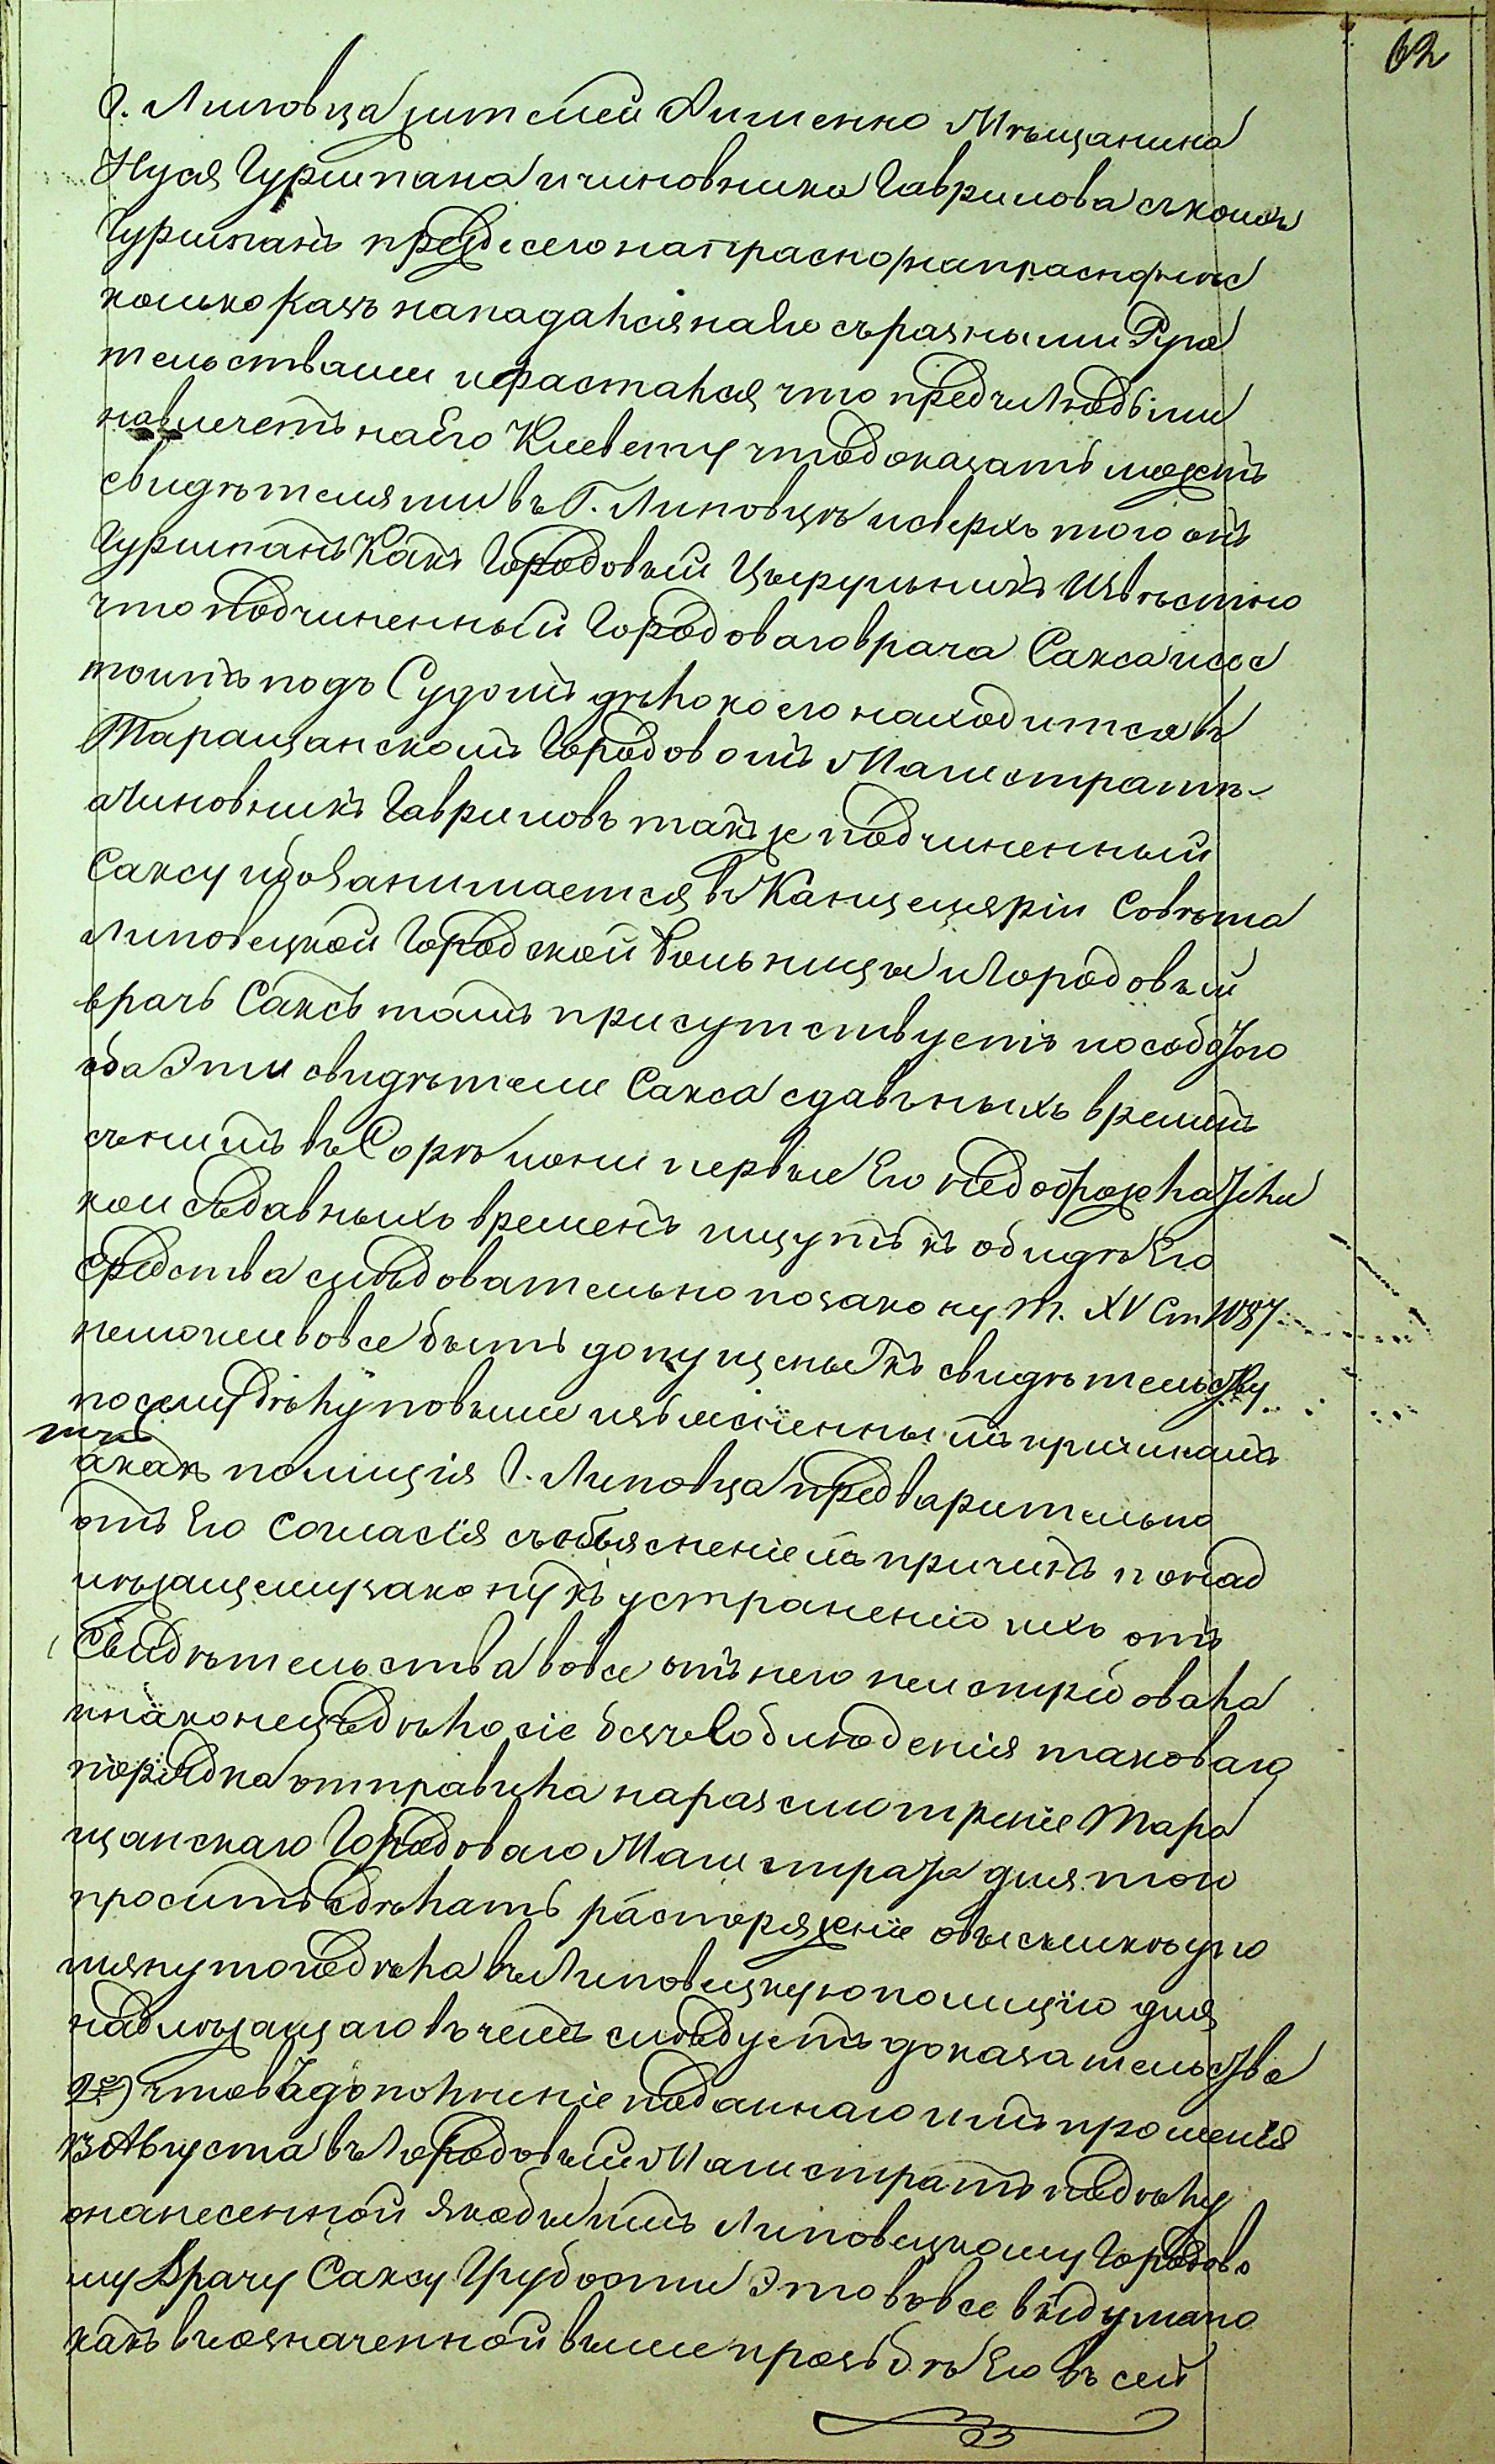 62
г. Липовца жителей Аименно Мѣщанина
Нуся Гуршпана и чиновника Гаврилова съкоихъ
Гуршпанъ прежде сего напрасно напрасно нѣс
колько разъ нападался на Его съ разными Руга
тельствами и хвастался что предъ людьми
навлечетъ на Его Клевету что доказать можетъ
свидѣтелями въ Г. Липовцѣ исверхъ того онъ
Гуршпанъ Какъ Городовый Цырульникъ Извѣстно
что подчиненный Городоваго врача Сакса исос
тоитъ подъ Судомъ дѣло коего находится въ
Таращанскомъ Городовомъ Магистратѣ
аЧиновникъ Гавриловъ такъже подчиненный
Саксу ибо Занимается въ Канцеляріи Совѣта
Липовецкой Городской Больницы и Городовый
врачъ Саксъ тамъ присутствуетъ и особо того
оба Эти свидѣтели Сакса сдавъныхъ времянъ
съ нимъ въ Сорѣ и они первые Его недоброжелатели
кои съдавныхъ временъ ищутъ къ обидѣ Его
средства слѣдовательно позакону т. XV Ст 1087
немогли вовсе быть допущены къ свидѣтельству
посему Дѣлу повыше изъясненнымъ причинамъ
такъ
а какъ полиція Г. Липовца предварительно
отъ Его Согласія съ объясненіемъ причинъ понад
лѣжащему закону къ устраненію ихъ отъ
Свидѣтельства вовсе отъ него неистребовала
инаконецъ дѣло сіе безъ соблюденія таковаго
порядка отправила на разсмотреніе Тара
щанскаго Городоваго Магистрата для того
проситъ сдѣлать распоряженіе овысылкѣ упо
мянутого дѣла въ Липовецкую полицію для
надлѣжащаго въ чемъ слѣдуетъ доказательства
2е) что въ дополненіе поданнаго имъ прошенія
13 Августа въ Городовый Магистратъ по дѣлу
онанесенной Якобы имъ Липовецкому Городово
му Врачу Саксу Грубости Это вовсе выдумано
какъ въ означенной выше прозьбѣ Его въ сей